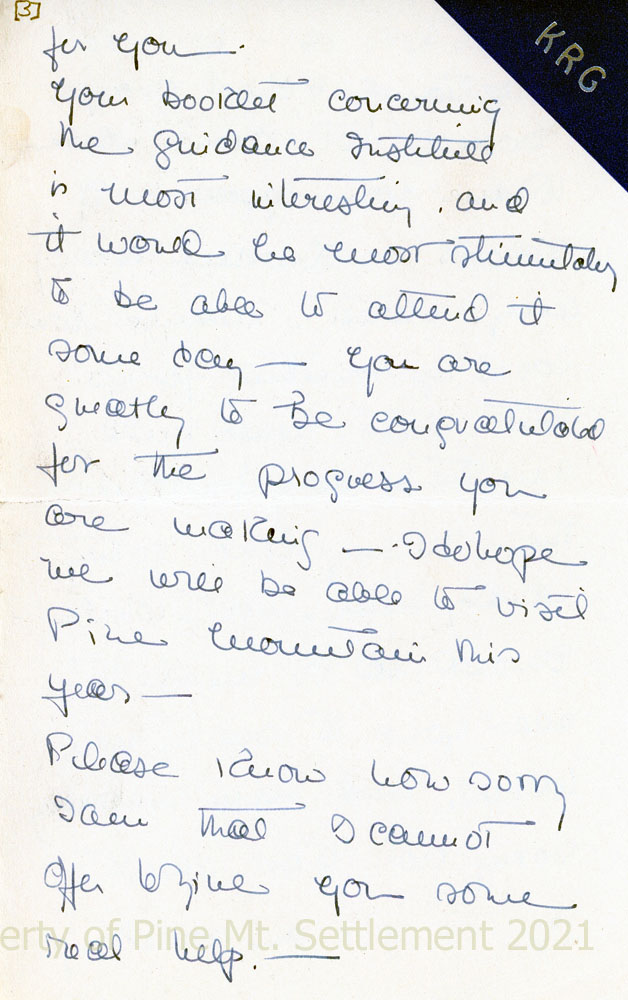 [3]
KRG
for you.
Your booklet concerning
the Guidance Institute
is most interesting. and
it would be most stimulating
to be able to attend it
some day — You are
greatly to be congratulated
for the progress you
are making —. I do hope
we will be able to visit
Pine Mountain this
year —
Please know how sorry
I am that I cannot
offer to give you some
real help. —
erty of Pine Mt. Settlement 2021